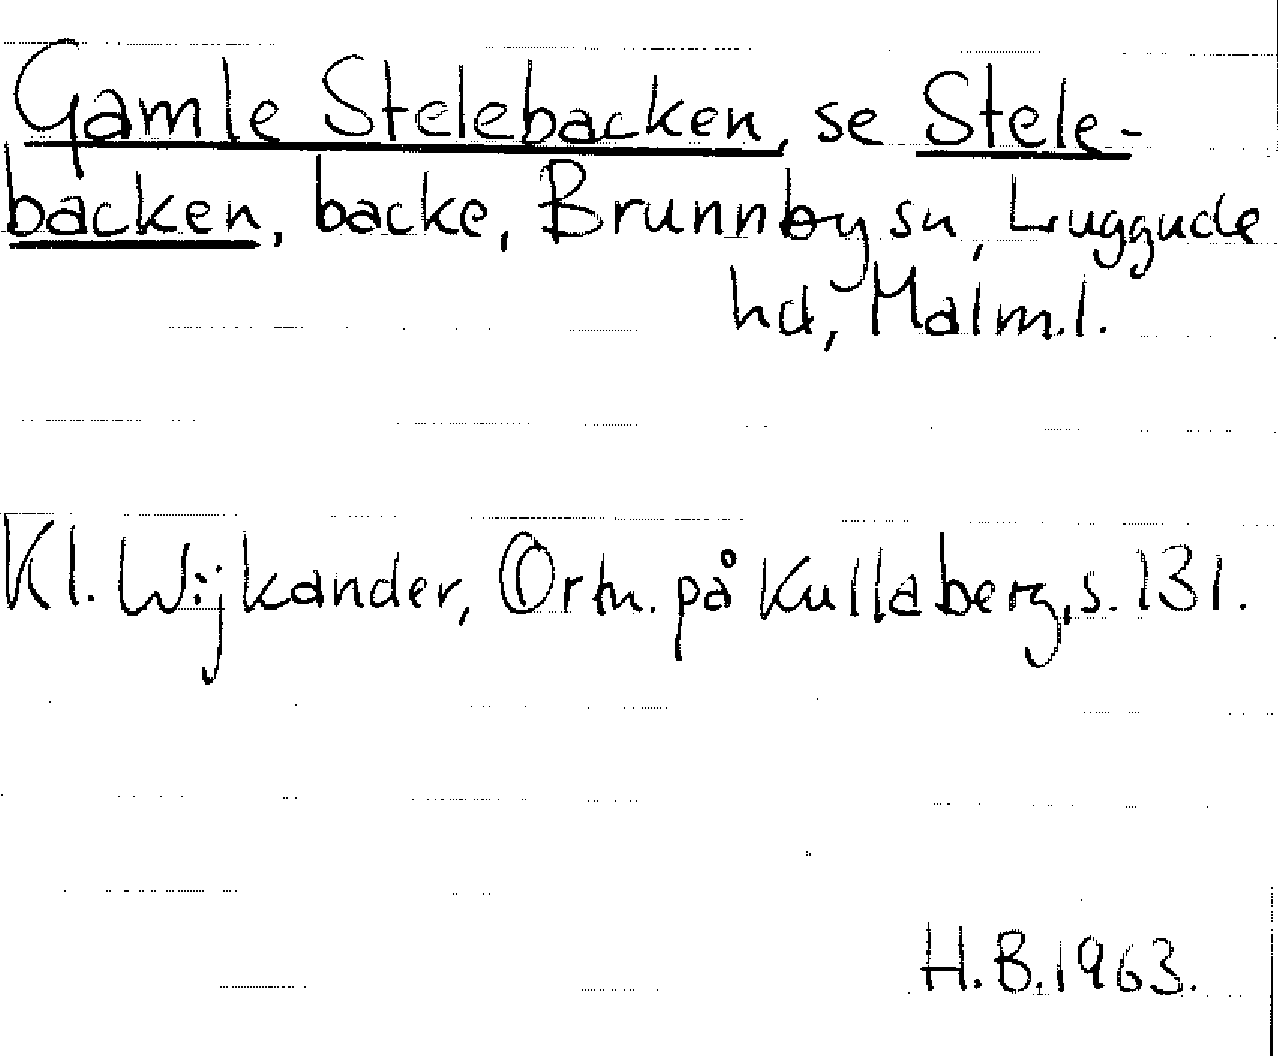 Gamle Stelebacken, se Stele-
backen, backe, Brunnby sn, Luggude
hd, Malm.l.
Kl. Wijkander, Ortn. på Kullaberg, s. 131.
H.B. 1963.